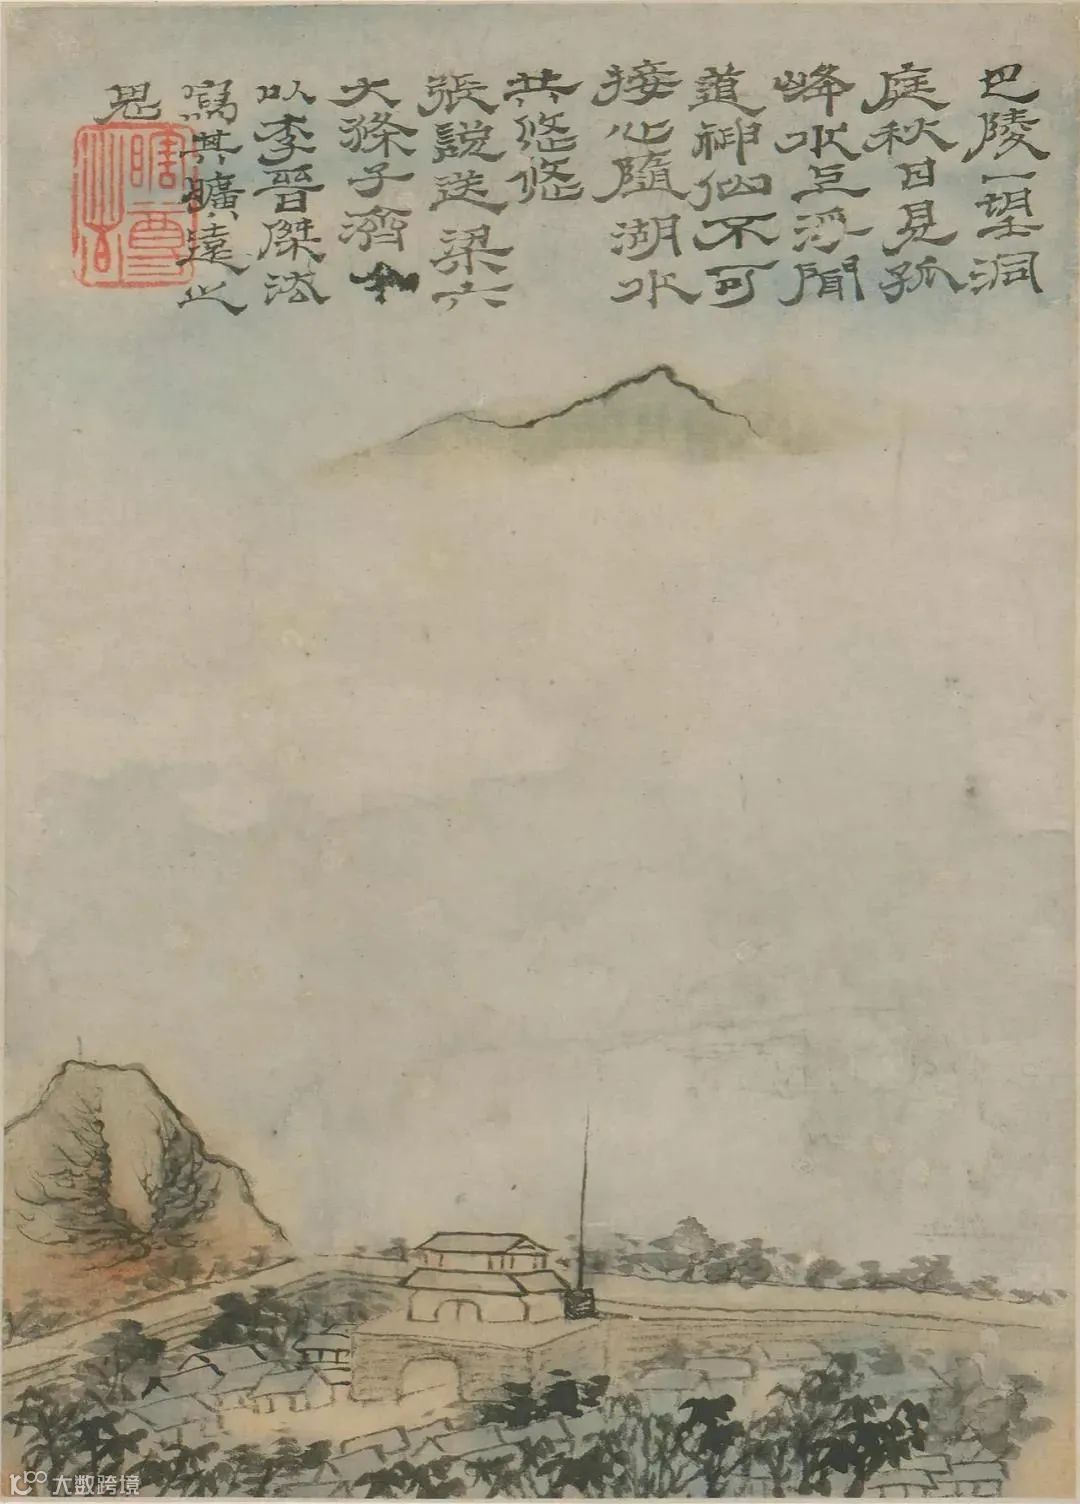 巴陵一望洞
庭秋日見孤
峰水上浮聞
道神仙不可
接心隨湖水
共悠悠
張說送梁六
大滌子濟
以李晉傑法
寫其曠遠之
思
瞎尊者
大数跨境